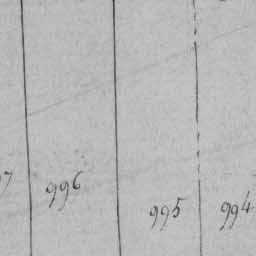 7 996 995 994